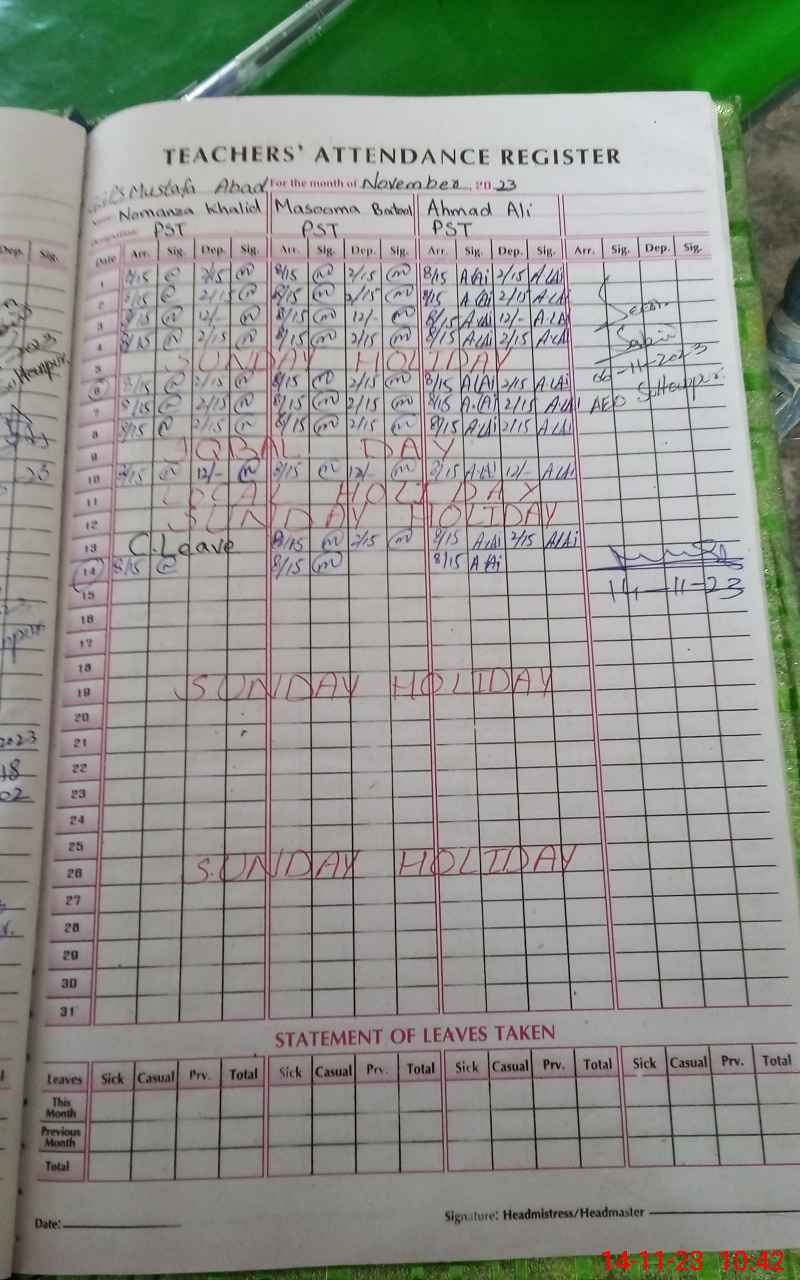 TEACHERS' ATTENDANCE REGISTER
Mustafa Abad For the month of November, 2023
Nomanza Khalid Masooma Ahmad Ali
PST PST PST
Date Arr. Sig. Dep. Sig. Arr. Sig. Dep. Sig. Arr. Sig. Dep. Sig. Arr. Sig. Dep. Sig.
1 8/15 2/15 8/15 2/15 8/15 A.Ali 2/15 A.Ali
2 8/15 2/15 8/15 2/15 8/15 A.Ali 2/15 A.Ali
3 8/15 12/- 8/15 12/- 8/15 A.Ali 12/- A.Ali
4 8/15 2/15 8/15 2/15 8/15 A.Ali 2/15 A.Ali
5 SUNDAY HOLIDAY
6 8/15 2/15 8/15 2/15 8/15 A.Ali 2/15 A.Ali
06-11-2023
7 8/15 2/15 8/15 2/15 8/15 A.Ali 2/15 A.Ali AEO
8 8/15 2/15 8/15 2/15 8/15 A.Ali 2/15 A.Ali
9 IQBAL DAY
10 8/15 12/- 8/15 12/- 8/15 A.Ali 12/- A.Ali
11 LOCAL HOLIDAY
12 SUNDAY HOLIDAY
13 C.Leave 8/15 2/15 8/15 A.Ali 2/15 A.Ali
14 8/15 8/15 8/15 A.Ali
15 14-11-23
16
17
18
19 SUNDAY HOLIDAY
20
21
22
23
24
25
26 SUNDAY HOLIDAY
27
28
29
30
31
STATEMENT OF LEAVES TAKEN
Leaves Sick Casual Prv. Total Sick Casual Prv. Total Sick Casual Prv. Total Sick Casual Prv. Total
This Month
Previous Month
Total
Date: Signature: Headmistress/Headmaster
14-11-23 10:42